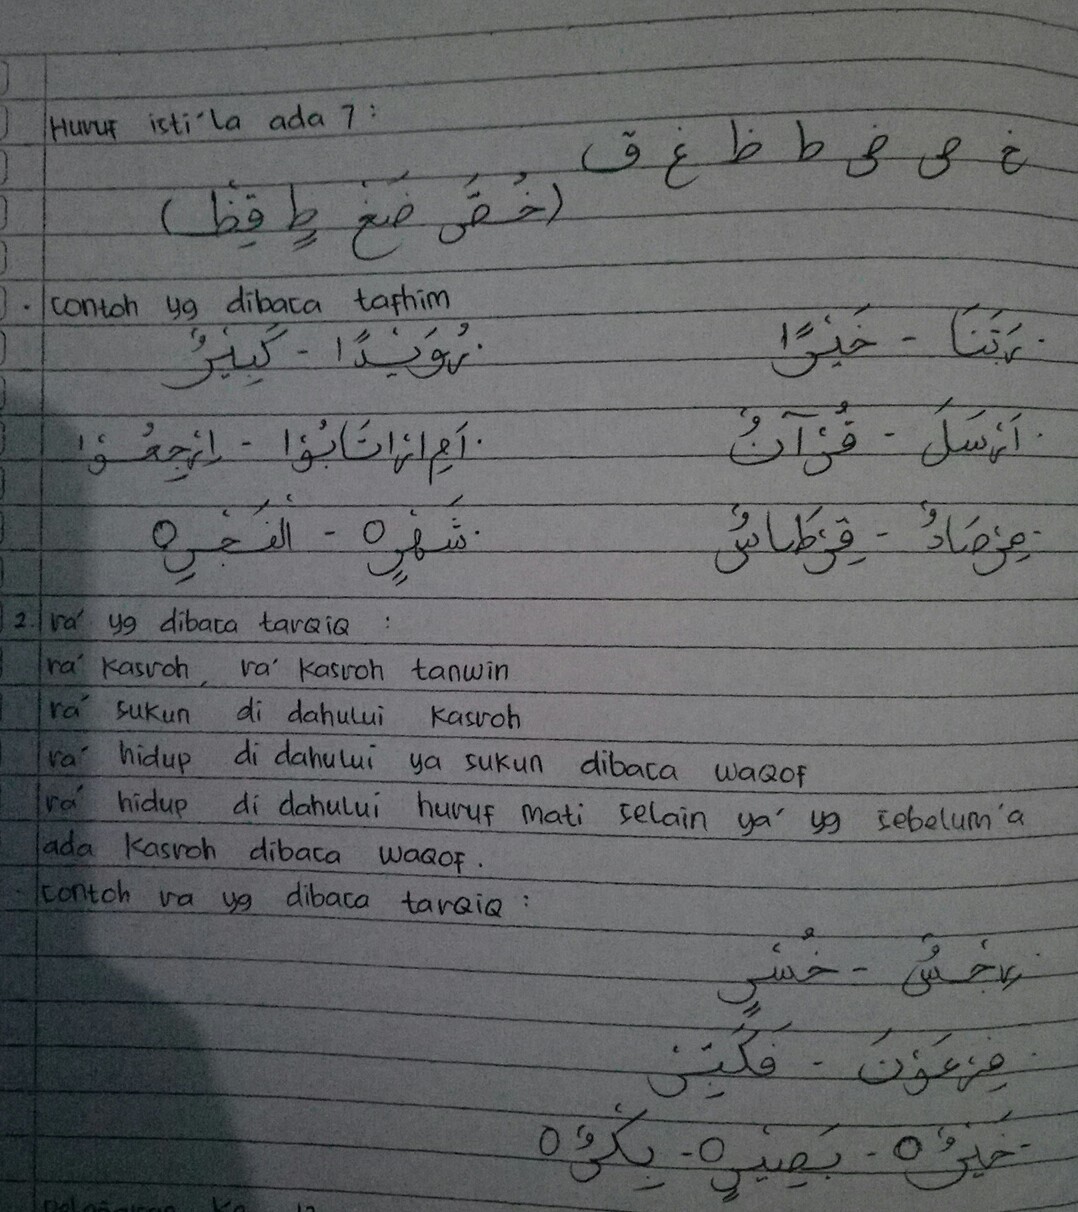 Huruf isti'la ada 7 :
خ ص ض ط ظ غ ق
(خُصَّ ضَغْطٍ قِظْ)
. contoh yg dibaca tafhim
. رَبَّنَا - خَيْرًا . رُوَيْدًا - كَبِيْرٌ
. اَرْسَلَ - قُرْآنٌ . اَمِ ارْتَابُوْا - اِرْجِعُوْا
. مِرْصَادٌ - قِرْطَاسٌ . شَهْرٍ ○ - الْفَجْرِ ○
2. ra' yg dibaca tarqiq :
ra' kasroh, ra' kasroh tanwin
ra' sukun di dahului kasroh
ra' hidup di dahului ya sukun dibaca waqof
ra' hidup di dahului huruf mati selain ya' yg sebelum'a
ada kasroh dibaca waqof.
. contoh ra yg dibaca tarqiq :
. رِجْسٌ - خُسْرٍ
. فِرْعَوْنَ - فَكَبِّرْ
. خَيْرٌ ○ - بَصِيْرٍ ○ - بِكْرٌ ○